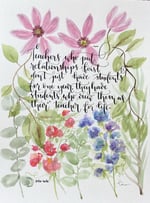 Teachers who put
relationships first
don't just have students
for one year, they have
students who view them as
their teacher for life.